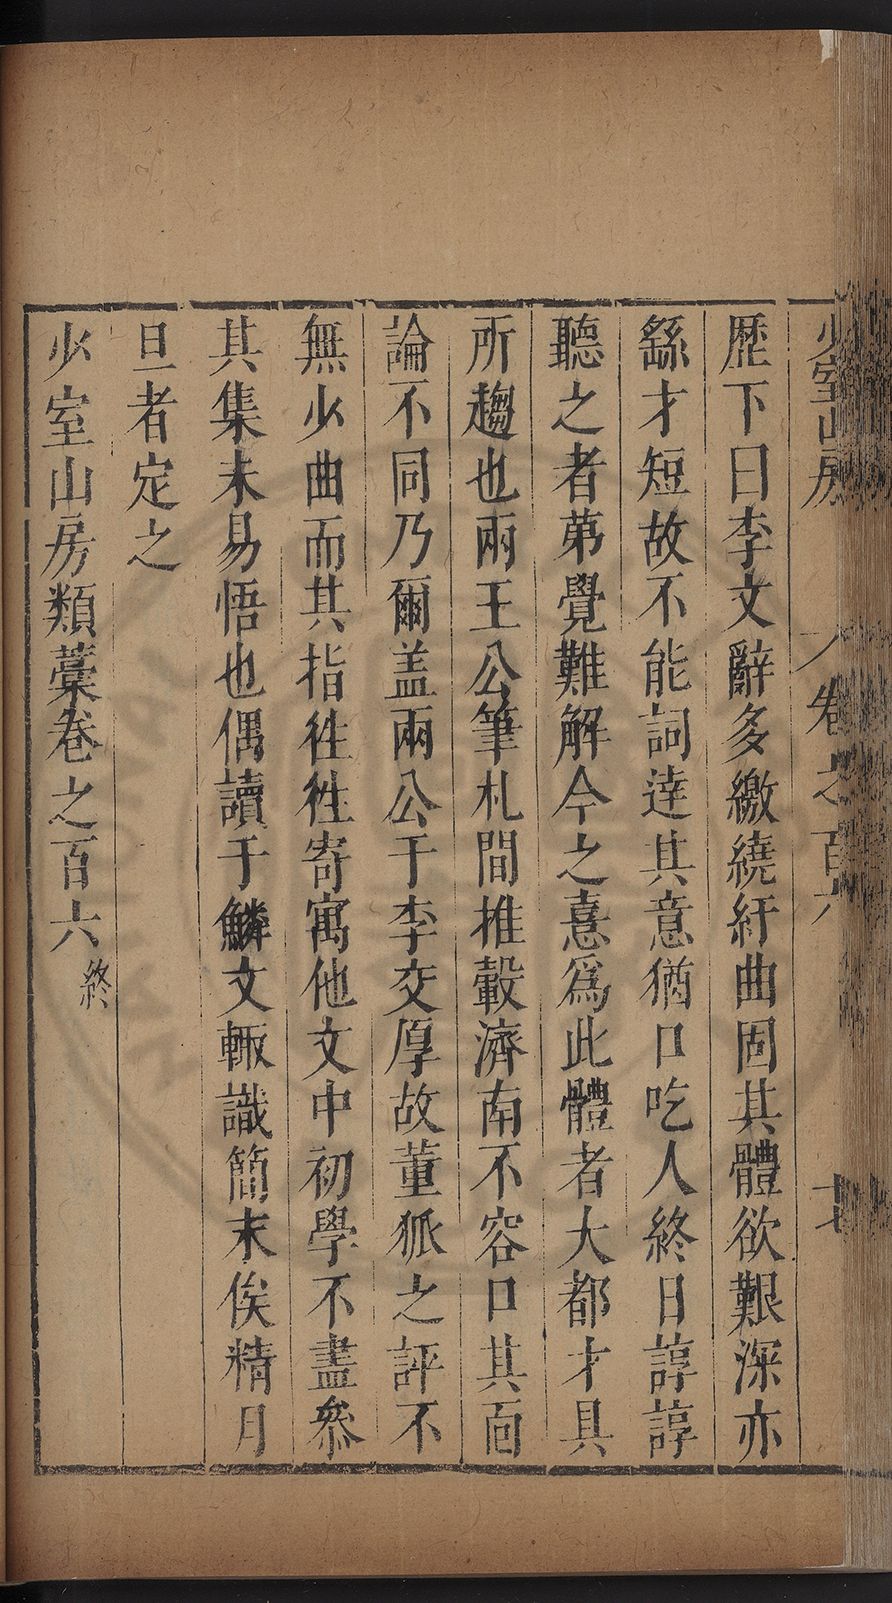 少室山房 卷之百六 十七
歷下曰李文辭多繳繞紆曲固其體欲艱深亦
繇才短故不能詞達其意猶口吃人終日諄諄
聽之者苐覺難解今之憙爲此體者大都才具
所趨也兩王公筆札間推轂濟南不容口其面
論不同乃爾盖兩公于李交厚故董狐之評不
無少曲而其指徃徃寄寓他文中初學不盡叅
其集未易悟也偶讀于鱗文輙識簡末俟精月
旦者定之
少室山房類藁卷之百六終